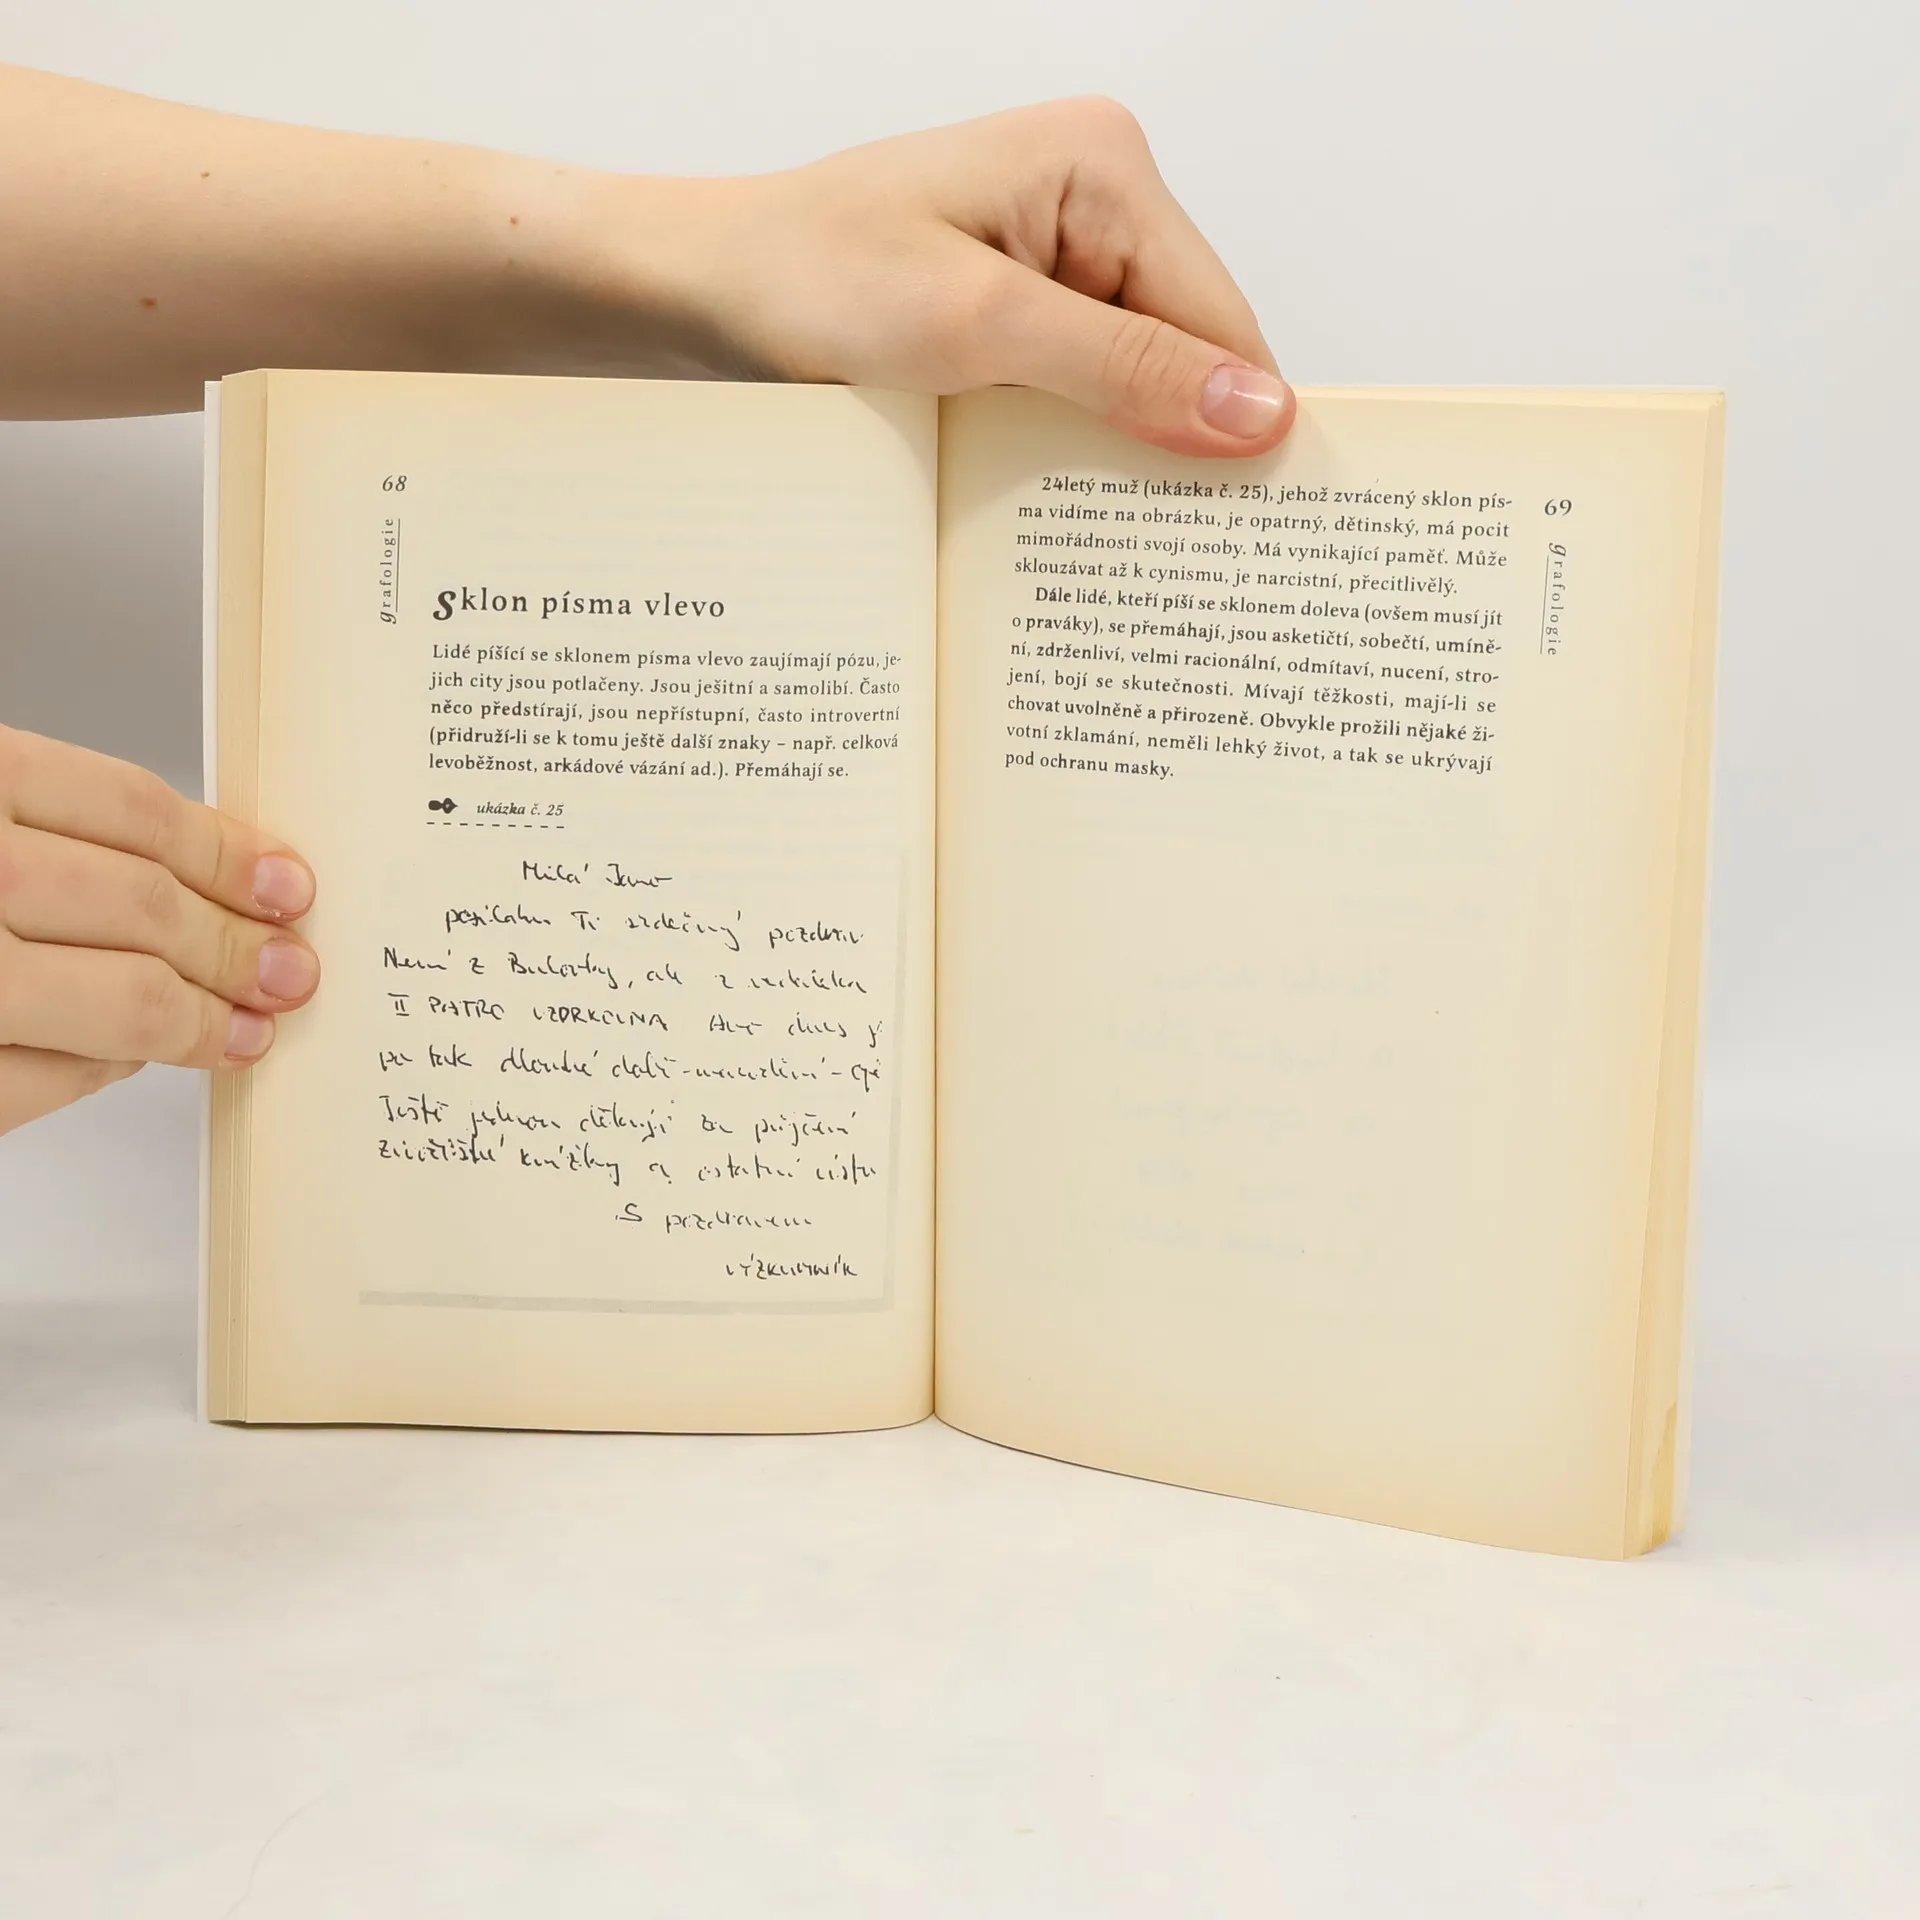 68
grafologie
Sklon písma vlevo
Lidé píšící se sklonem písma vlevo zaujímají pózu, je-
jich city jsou potlačeny. Jsou ješitní a samolibí. Často
něco předstírají, jsou nepřístupní, často introvertní
(přidruží-li se k tomu ještě další znaky – např. celková
levoběžnost, arkádové vázání ad.). Přemáhají se.
ukázka č. 25
Milá Jano
posílám Ti srdečný pozdrav
Není z Bulovky, ale z
II PATRO VZDRKOLNA
tak dlouhé době
Ještě jednou děkuji za půjčení
knížky a ostatní
S pozdravem
VÝZKUMNÍK
24letý muž (ukázka č. 25), jehož zvrácený sklon pís-
ma vidíme na obrázku, je opatrný, dětinský, má pocit
mimořádnosti svojí osoby. Má vynikající paměť. Může
sklouzávat až k cynismu, je narcistní, přecitlivělý.
Dále lidé, kteří píší se sklonem doleva (ovšem musí jít
o praváky), se přemáhají, jsou asketičtí, sobečtí, umíně-
ní, zdrženliví, velmi racionální, odmítaví, nucení, stro-
jení, bojí se skutečnosti. Mívají těžkosti, mají-li se
chovat uvolněně a přirozeně. Obvykle prožili nějaké ži-
votní zklamání, neměli lehký život, a tak se ukrývají
pod ochranu masky.
69
grafologie